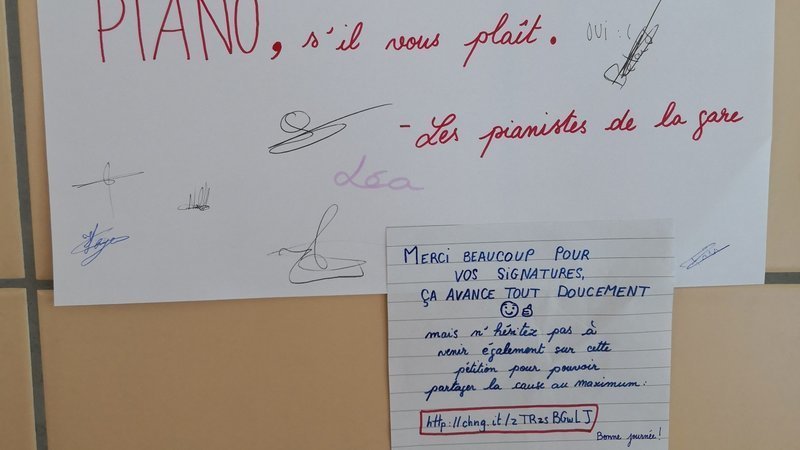 PIANO, s'il vous plaît.
OUI :(
- Les pianistes de la gare
Léa
MERCI BEAUCOUP POUR
VOS SIGNATURES,
ÇA AVANCE TOUT DOUCEMENT
mais n'hésitez pas à
venir également sur cette
pétition pour pouvoir
partager la cause au maximum :
http://chng.it/zTRzsBGwLJ
Bonne journée !